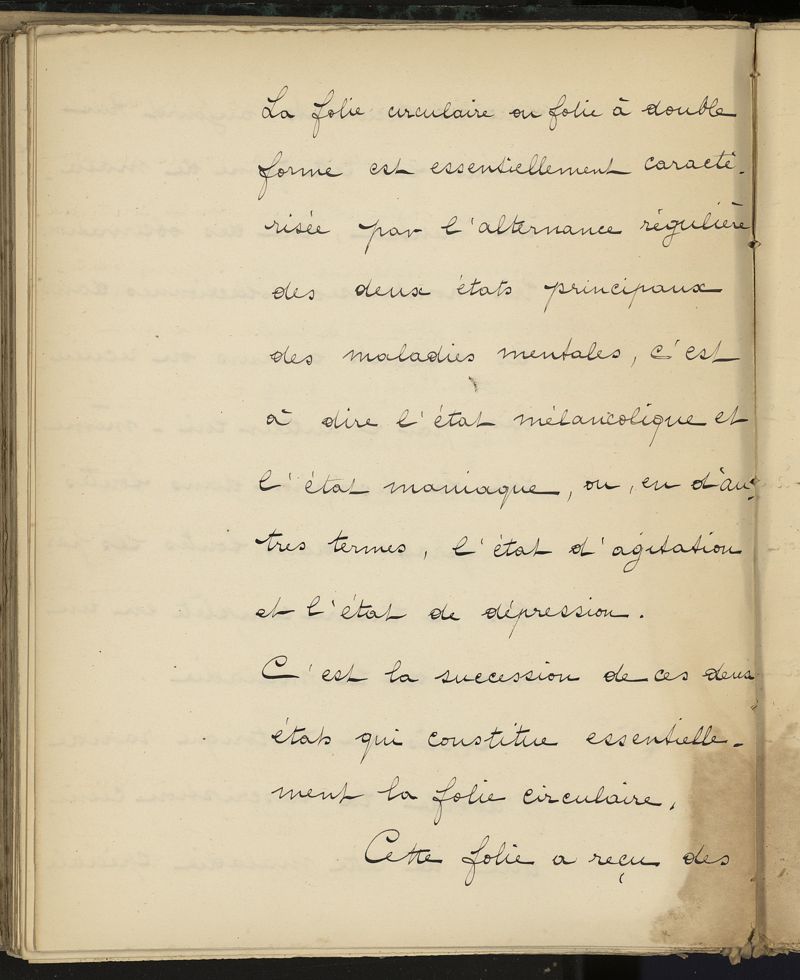 La folie circulaire ou folie à double
forme est essentiellement caracté-
risée par l'alternance régulière
des deux états principaux
des maladies mentales, c'est
à dire l'état mélancolique et
l'état maniaque, ou, en d'au-
tres termes, l'état d'agitation
et l'état de dépression.
C'est la succession de ces deux
états qui constitue essentielle-
ment la folie circulaire.
Cette folie a reçu des